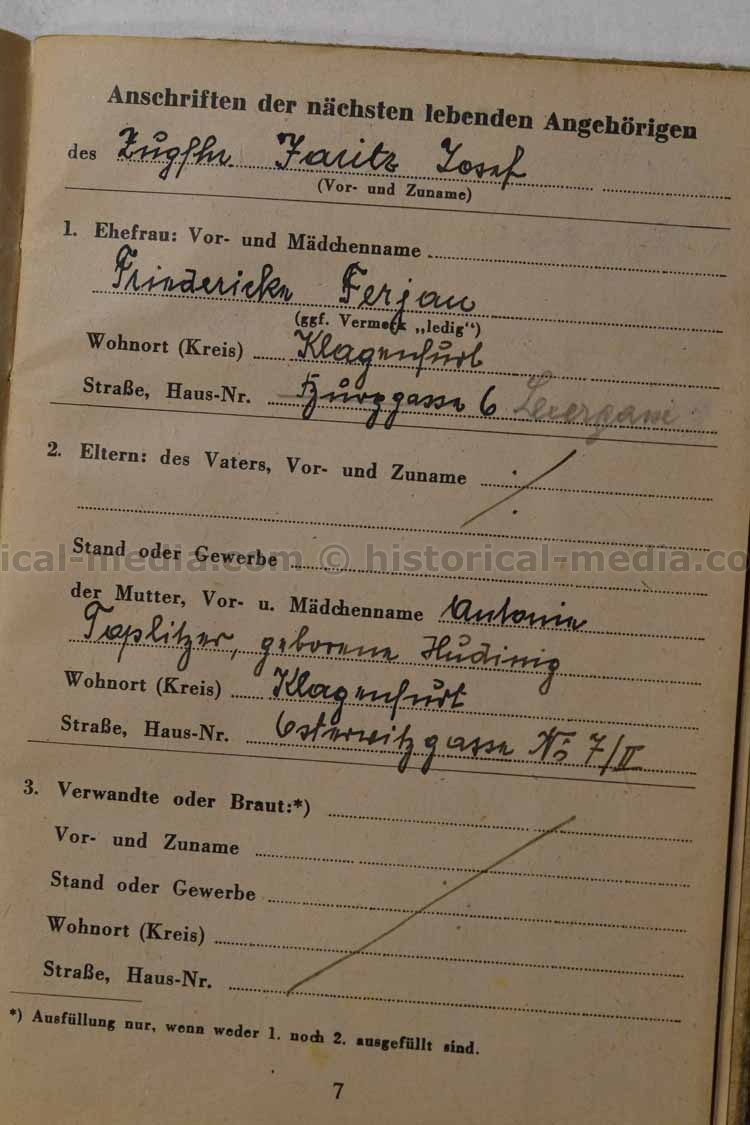 Anschriften der nächsten lebenden Angehörigen
des Zugfhr. Jaritz Josef
(Vor- und Zuname)
1. Ehefrau: Vor- und Mädchenname
Friedericke Ferjan
(ggf. Vermerk „ledig“)
Wohnort (Kreis) Klagenfurt
Straße, Haus-Nr. Burggasse 6
2. Eltern: des Vaters, Vor- und Zuname
Stand oder Gewerbe
ical-media.com © historical-media.co
der Mutter, Vor- u. Mädchenname Antonie
Toplitzer, geborene Hudinig
Wohnort (Kreis) Klagenfurt
Straße, Haus-Nr. Osterwitzgasse No 7/II
3. Verwandte oder Braut:*)
Vor- und Zuname
Stand oder Gewerbe
Wohnort (Kreis)
Straße, Haus-Nr.
*) Ausfüllung nur, wenn weder 1. noch 2. ausgefüllt sind.
7